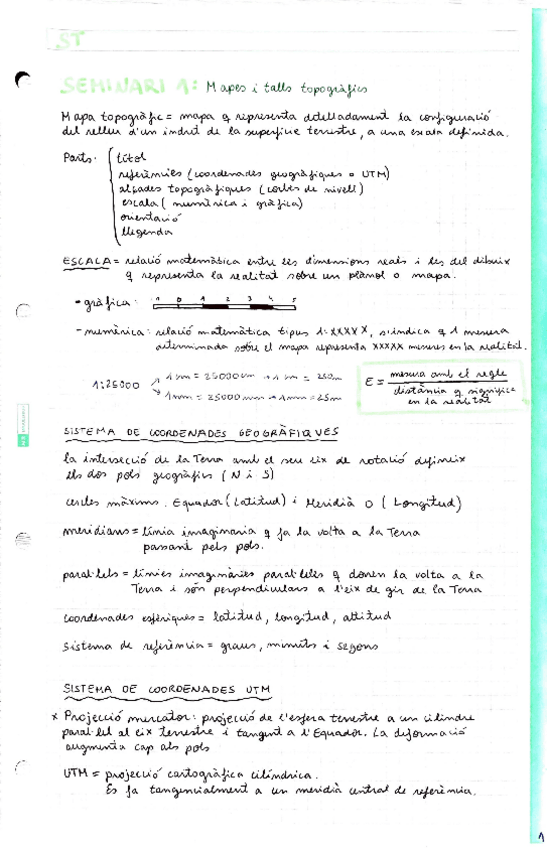 ST
SEMINARI 1: Mapes i talls topogràfics
Mapa topogràfic = mapa q representa detalladament la configuració
del relleu d'un indret de la superfície terrestre, a una escala definida.
Parts: títol
referències (coordenades geogràfiques o UTM)
alçades topogràfiques (corbes de nivell)
escala (numèrica i gràfica)
orientació
llegenda
ESCALA = relació matemàtica entre les dimensions reals i les del dibuix
q representa la realitat sobre un plànol o mapa.
- gràfica: 1 0 1 2 3 4 5
- numèrica: relació matemàtica tipus 1:XXXXX, s'indica q 1 mesura
determinada sobre el mapa representa XXXXX mesures en la realitat.
1:25000 1 cm = 25000 cm → 1 cm = 250m
1mm = 25000 mm → 1mm = 25m
E = mesura amb el regle
distància q significa
en la realitat
SISTEMA DE COORDENADES GEOGRÀFIQUES
la intersecció de la Terra amb el seu eix de rotació defineix
els dos pols geogràfics (N i S)
cercles màxims. Equador (Latitud) i Meridià 0 (Longitud)
meridians = línia imaginaria q fa la volta a la Terra
passant pels pols.
paral·lels = línies imaginàries paral·leles q donen la volta a la
Terra i són perpendiculars a l'eix de gir de la Terra
coordenades esfèriques = latitud, longitud, altitud
sistema de referència = graus, minuts i segons
SISTEMA DE COORDENADES UTM
* Projecció mercator: projecció de l'esfera terrestre a un cilindre
paral·lel al eix terrestre i tangent a l'Equador. La deformació
augmenta cap als pols
UTM = projecció cartogràfica cilíndrica.
Es fa tangencialment a un meridià central de referència.
1